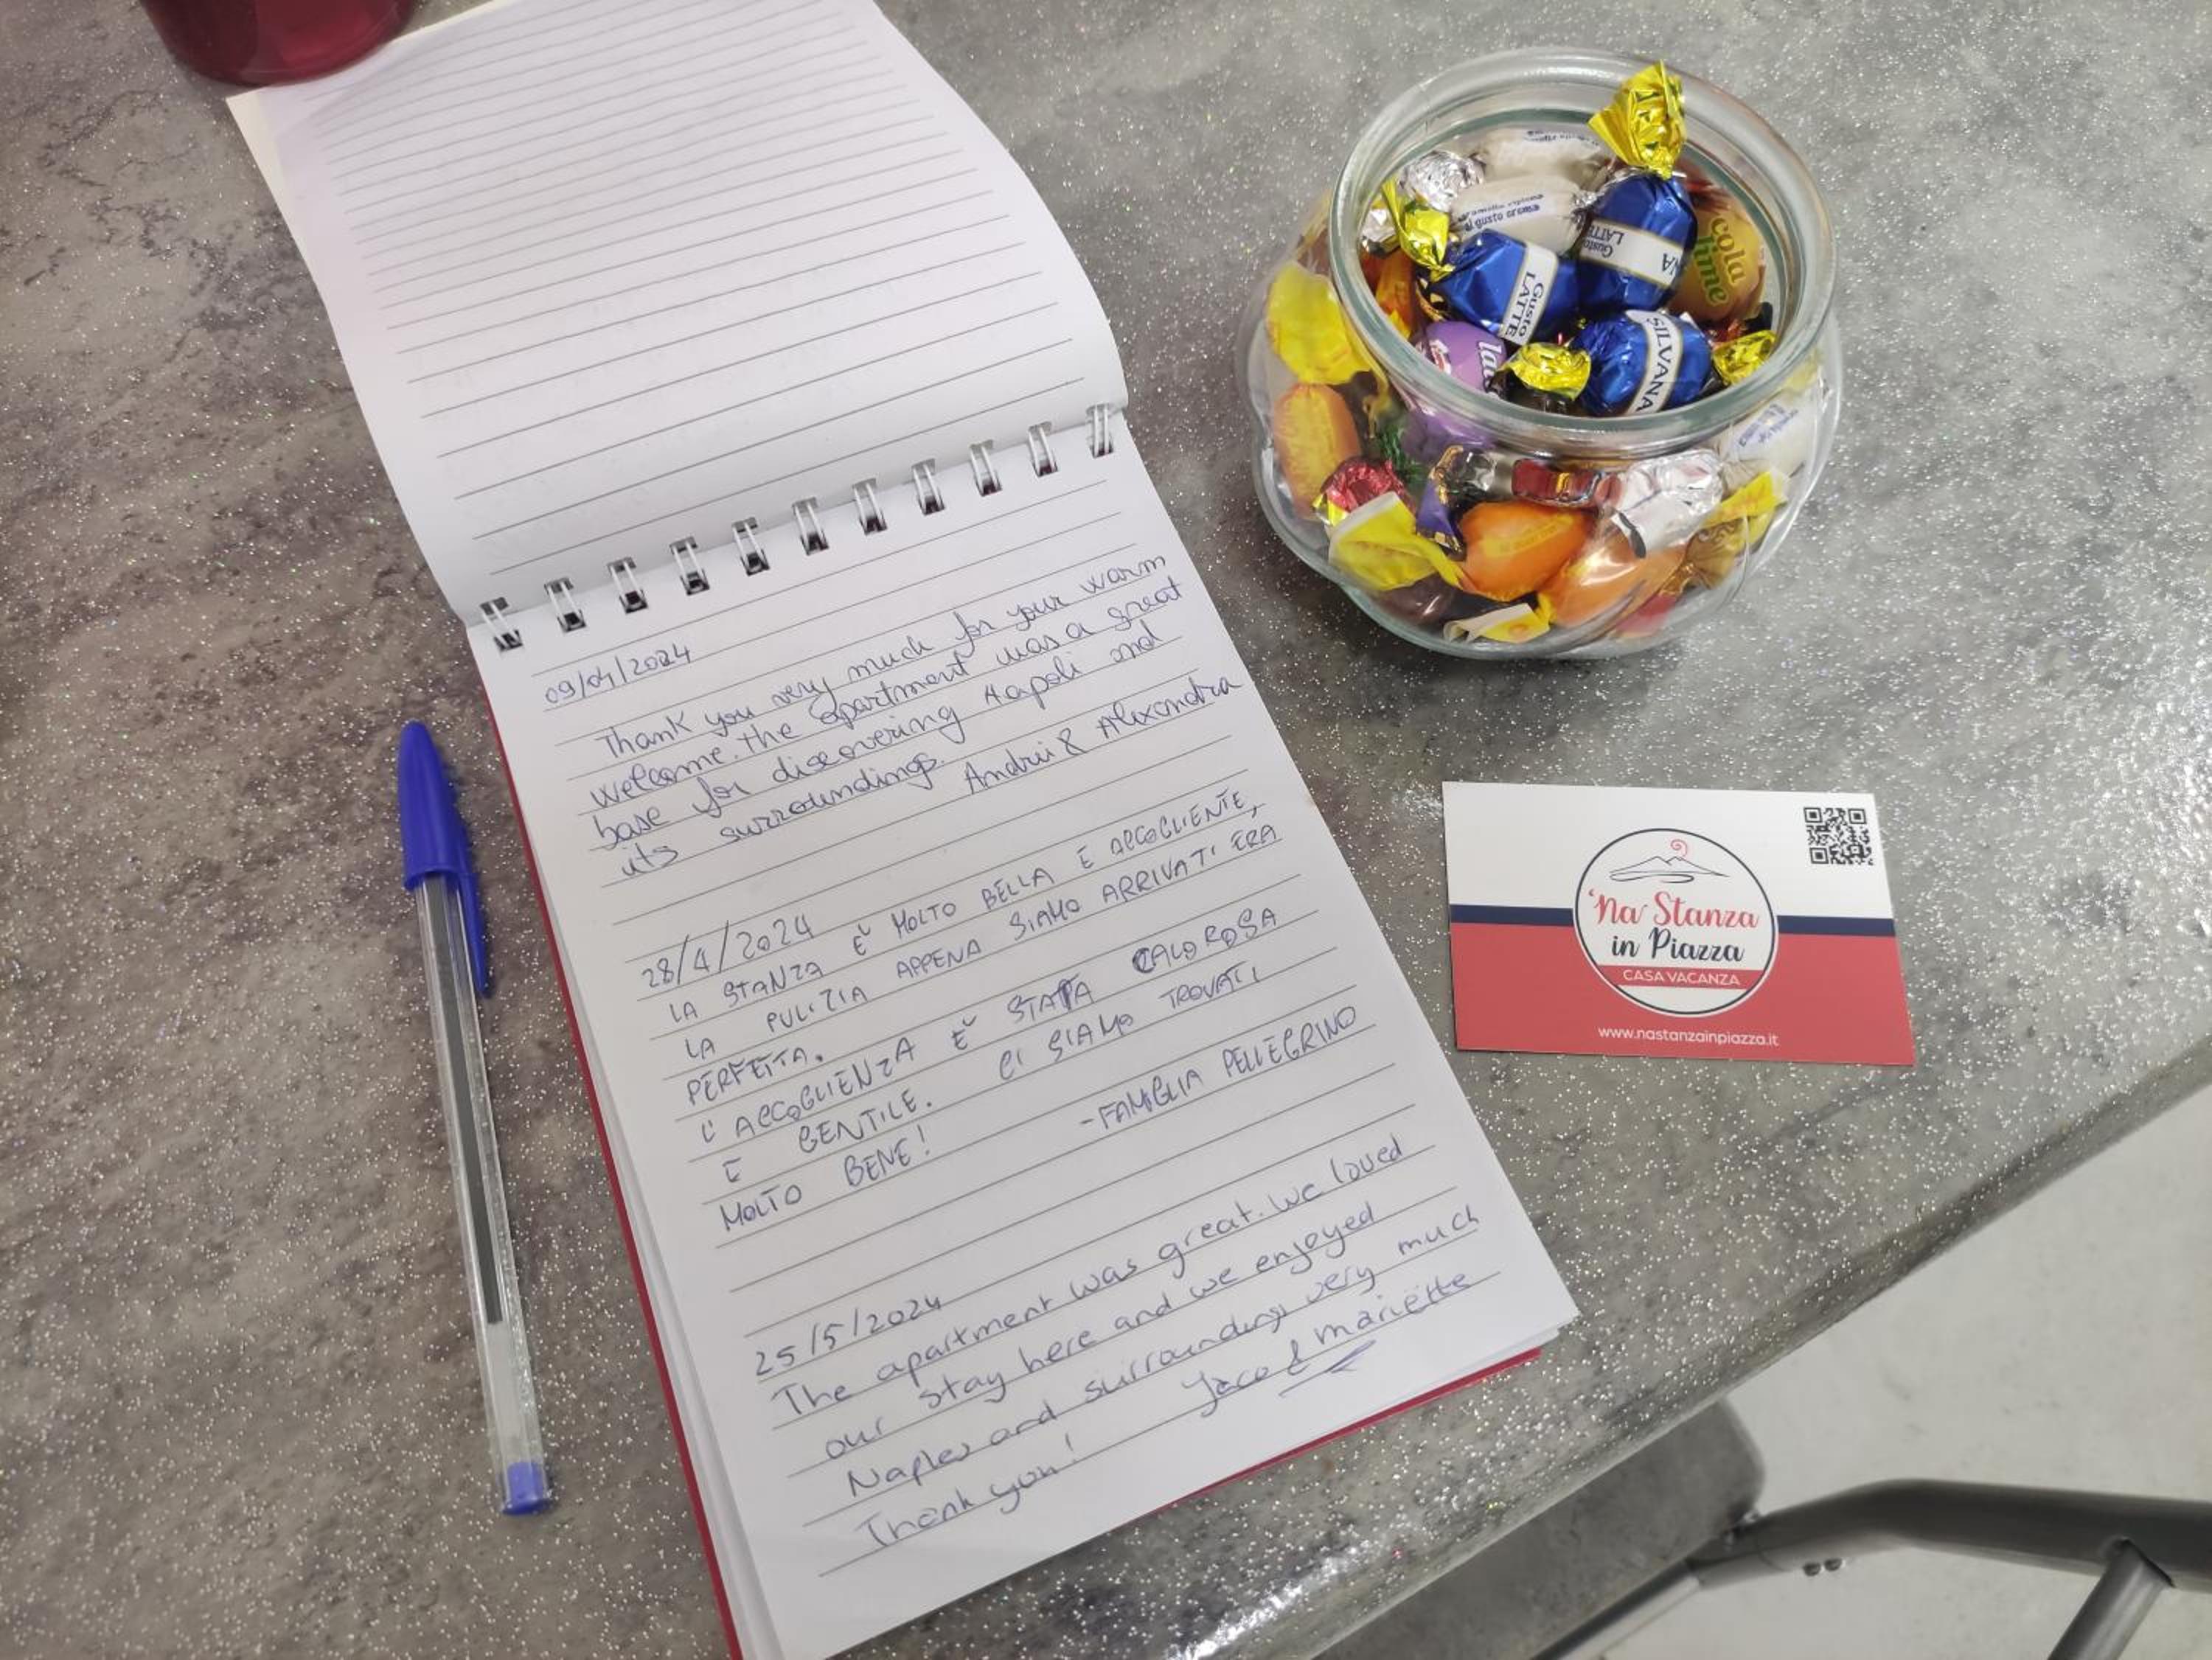 09/04/2024
Thank you very much for your warm
welcome. The apartment was a great
base for discovering Napoli and
its surroundings.
Andrii & Alexandra
28/4/2024
LA STANZA È MOLTO BELLA E ACCOGLIENTE,
LA PULIZIA APPENA SIAMO ARRIVATI ERA
PERFETTA.
L'ACCOGLIENZA È STATA CALOROSA
E GENTILE. CI SIAMO TROVATI
MOLTO BENE!
-FAMIGLIA PELLEGRINO
25/5/2024
The apartment was great. We loved
our stay here and we enjoyed
Naples and surroundings very much
Thank you!
Jaco & Mariëtte
Gusto
LATTE
Gusto
LATTE
SILVANA
cola
lime
al gusto
'Na Stanza
in Piazza
CASA VACANZA
www.nastanzainpiazza.it